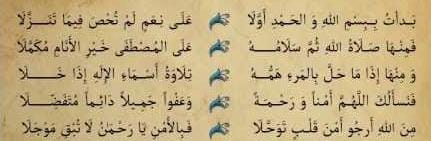 بَدَأتُ بِـبِسمِ اللهِ وَ الحَمْدِ أَوَّلَا عَلَى نِعَمٍ لَمْ تُحْصَ فِيمَا تَنَـزَّلَا
فَمِنْهَا صَلَاةُ اللهِ ثُمَّ سَلَامُـهُ عَلَى المُصْطَفَى خَيْرِ الأَنَامِ مُكَمَّلَا
وَ مِنْهَا إِذَا مَا حَلَّ بِالمَرءِ هَمُّـهُ تِلَاوَةُ أَسْمَاءِ الإِلَهِ إِذَا خَـلَا
فَنَسأَلُكَ اللَّهُمَّ أَمْناً وَ رَحْمَـةً وَعَفْواً جَمِيلاً دَائِماً مُتَفَضِّـلَا
مِنَ اللهِ أَرجُو أَمْنَ قَلْبٍ تَوَحَّلَا فَبِالأَمْنِ يَا رَحْمَنُ لَا تُبْقِ مَوْجَلَا